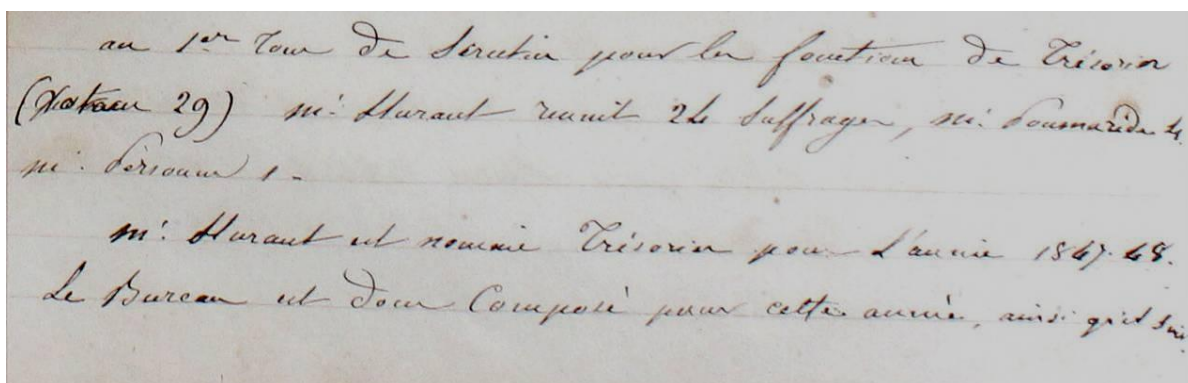 au 1er Tour de Scrutin pour les fonctions de Trésorier
(votans 29) Mr. Huraut réunit 24 Suffrages, Mr. Poumarède 4.
Mr. Personne 1-
Mr. Huraut est nommé Trésorier pour L'année 1847-48.
Le Bureau est donc Composé pour cette année, ainsi qu'il suit